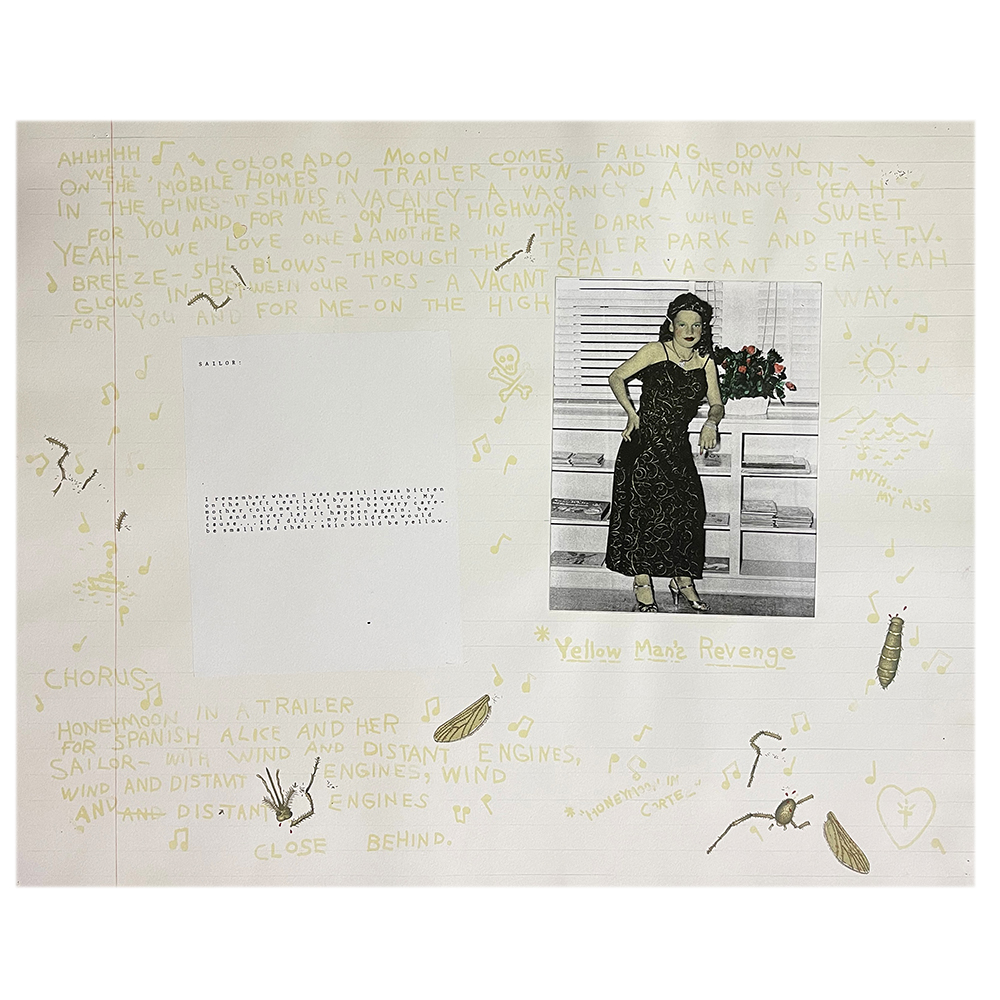 AHHHHH
WELL, A COLORADO MOON COMES FALLING DOWN
ON THE MOBILE HOMES IN TRAILER TOWN- AND A NEON SIGN-
IN THE PINES- IT SHINES A VACANCY- A VACANCY- A VACANCY, YEAH
FOR YOU AND FOR ME - ON THE HIGHWAY.
YEAH- WE LOVE ONE ANOTHER IN THE DARK- WHILE A SWEET
BREEZE- SHE BLOWS- THROUGH THE TRAILER PARK- AND THE T.V.
GLOWS IN- BETWEEN OUR TOES - A VACANT SEA- A VACANT SEA-YEAH
FOR YOU AND FOR ME-ON THE HIGH WAY.
SAILOR:
I remember when I was small I was bitten
on the left testicle by a mosquito. My
mother told me that I must be very care-
ful and never let it happen again, be-
cause...if I did...my children would
be small and their skin would be yellow.
MYTH...
MY ASS
*Yellow Man's Revenge
CHORUS-
HONEYMOON IN A TRAILER
FOR SPANISH ALICE AND HER
SAILOR- WITH WIND AND DISTANT ENGINES,
WIND AND DISTANT ENGINES, WIND
AND AND DISTANT ENGINES
CLOSE BEHIND.
*"HONEYMOON IN
CORTEZ"